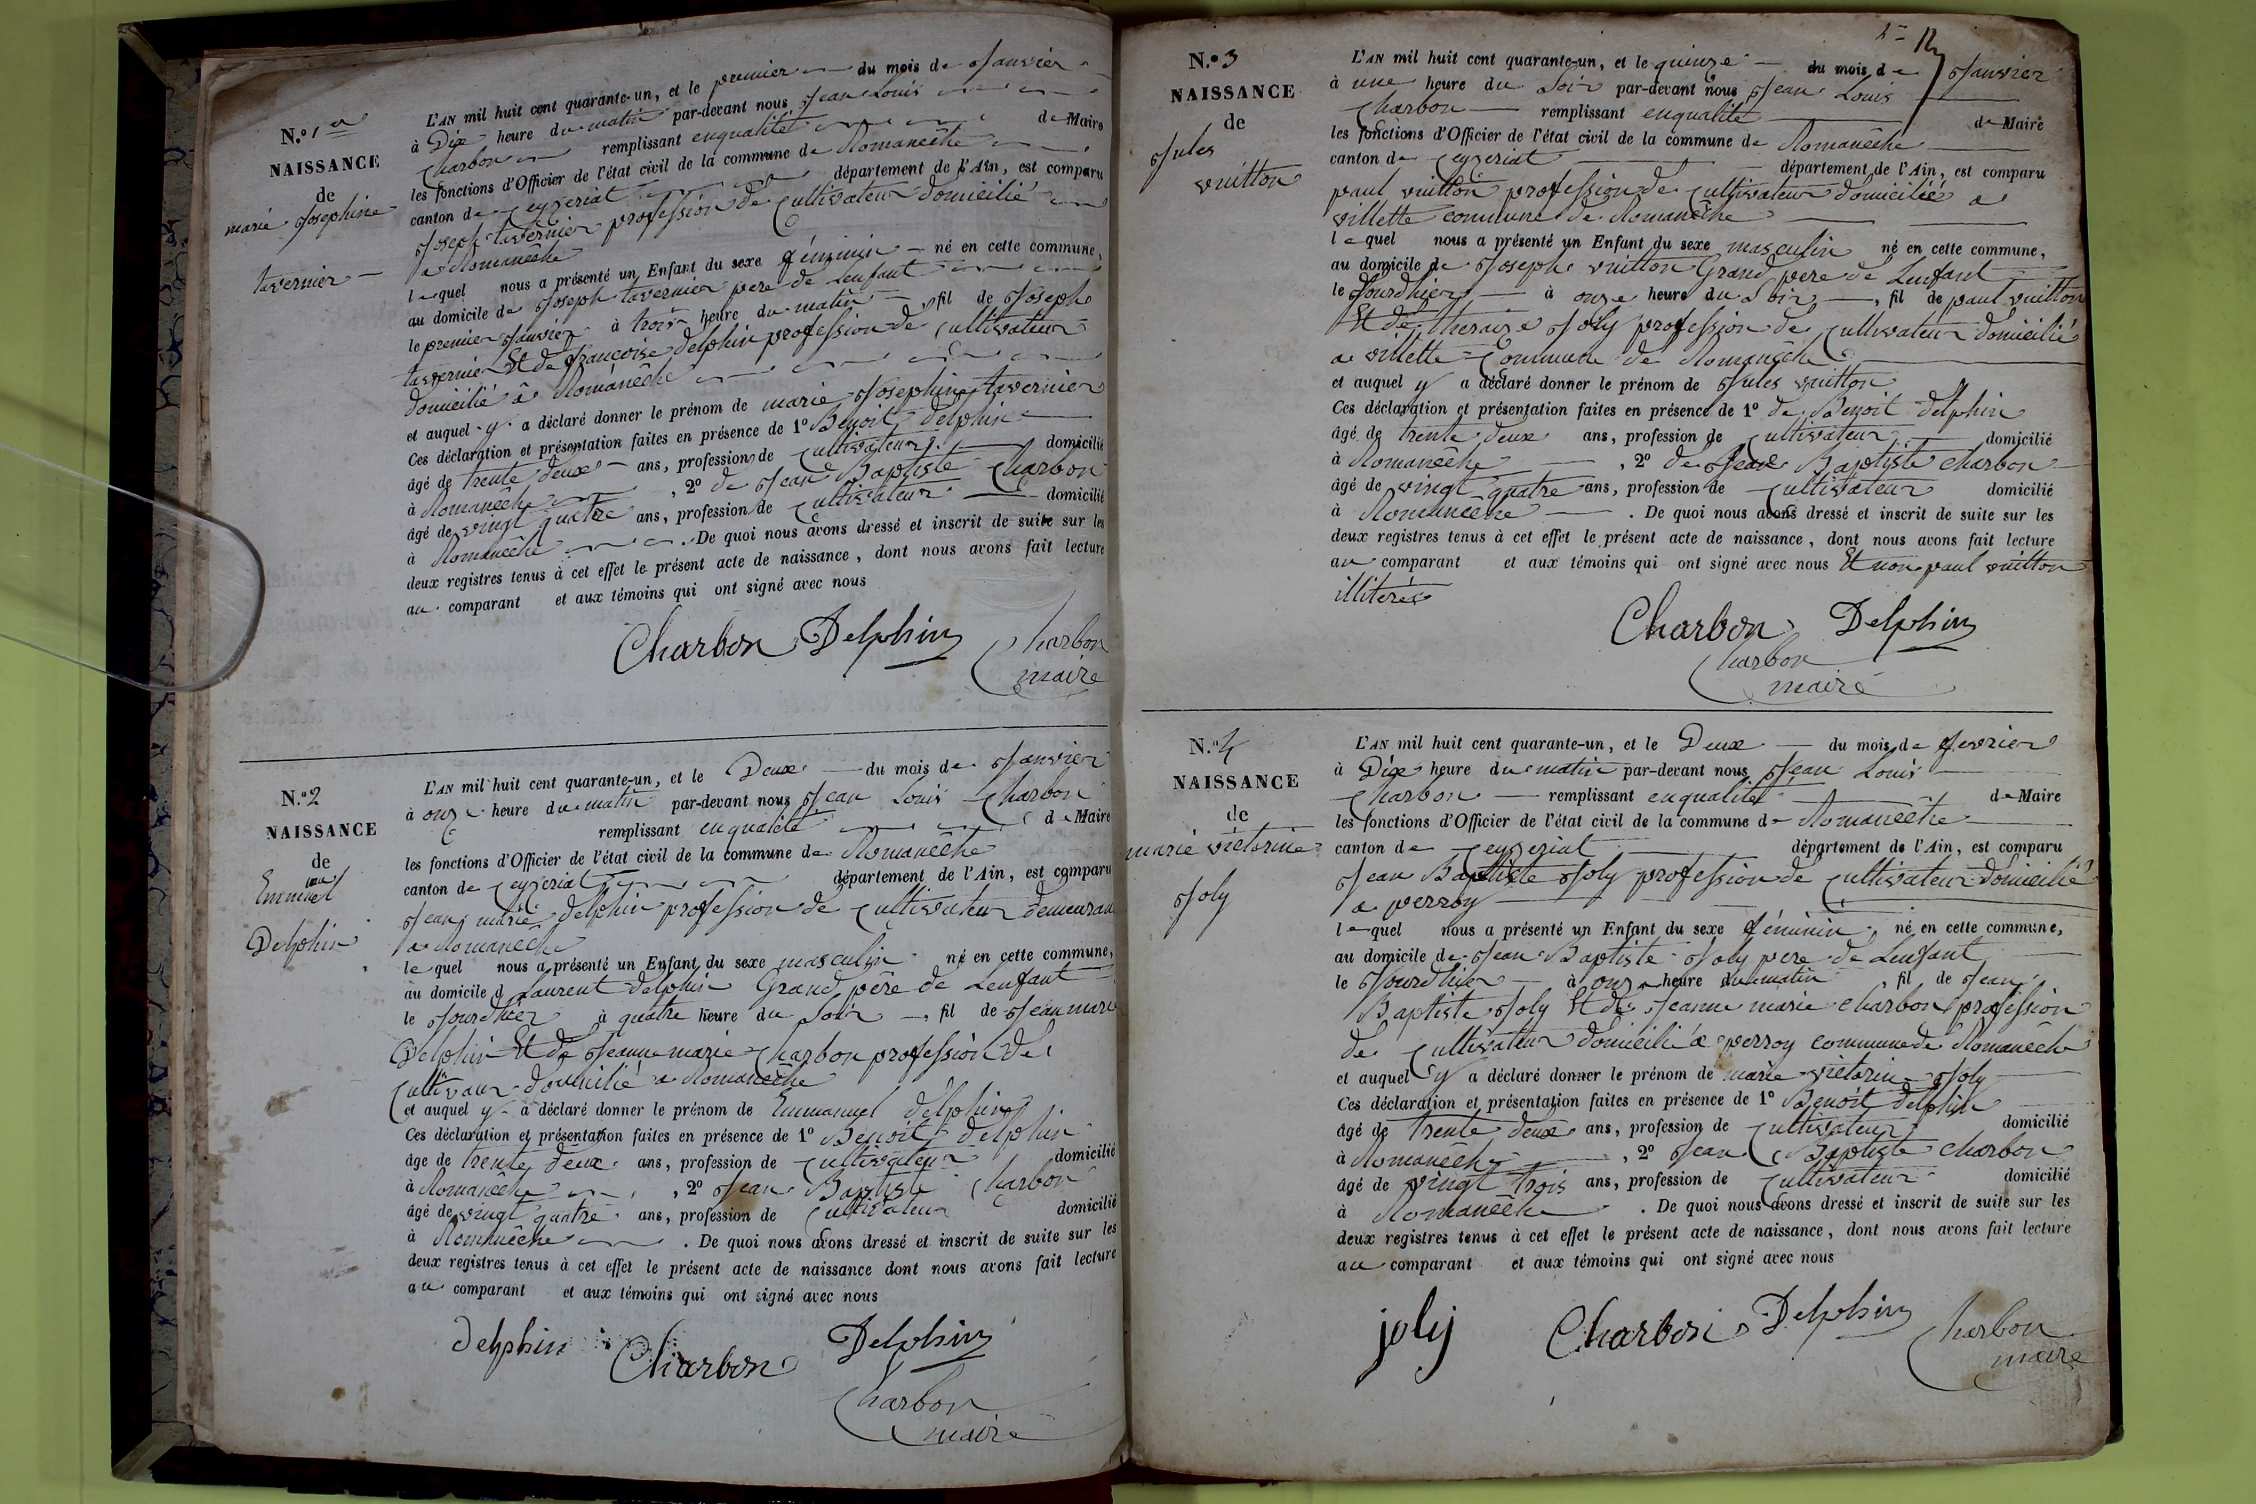 N.º 1er
NAISSANCE
de
marie Josephine
tavernier
L'AN mil huit cent quarante-un, et le premier du mois de Janvier
à Dix heure du matin par-devant nous Jean Louis
Charbon remplissant enqualité de Maire
les fonctions d'Officier de l'état civil de la commune de Romanêche
canton de Ceyzeriat département de l'Ain, est comparu
Joseph tavernier profession de Cultivateur domicilié
a Romanêche
lequel nous a présenté un Enfant du sexe féminin né en cette commune,
au domicile de Joseph tavernier pere de Lenfant
le premier Janvier à trois heure du matin, fil de Joseph
tavernier Et de françoise delphin profession de Cultivateur
domicilié â Romanêche
et auquel y a déclaré donner le prénom de marie Josephine tavernier
Ces déclaration et présentation faites en présence de 1º Benoit delphin
âgé de trente deux ans, profession de Cultivateur domicilié
à Romanêche, 2º de Jean Baptiste Charbon
âgé de vingt quatre ans, profession de Cultivateur domicilié
à Romanêche. De quoi nous avons dressé et inscrit de suite sur les
deux registres tenus à cet effet le présent acte de naissance, dont nous avons fait lecture
au comparant et aux témoins qui ont signé avec nous
Charbon Delphin Charbon
maire
N.º 2
NAISSANCE
de
Emmnuel
Delphin
L'AN mil huit cent quarante-un, et le Deux du mois de Janvier
à onze heure du matin par-devant nous Jean Louis Charbon
remplissant enqualité de Maire
les fonctions d'Officier de l'état civil de la commune de Romanêche
canton de Ceyzeriat département de l'Ain, est comparu
Jean marie delphin profession de Cultivateur demeuran
a Romanêche
lequel nous a présenté un Enfant du sexe masculin né en cette commune,
au domicile d Laurent delphin Grand pêre de Lenfant
le Jourdhier à quatre heure du Soir, fil de Jean marie
Delphin Et de Jeanne marie Charbon profession de
Cultivaur domicilié a Romanêche
et auquel y a déclaré donner le prénom de Emmanuel delphin
Ces déclaration et présentation faites en présence de 1º Benoit delphin
âge de trente deux ans, profession de Cultivateur domicilié
à Romanêche, 2º Jean Baptiste Charbon
âgé de vingt quatre ans, profession de Cultivateur domicilié
à Romanêche. De quoi nous avons dressé et inscrit de suite sur les
deux registres tenus à cet effet le présent acte de naissance dont nous avons fait lecture
au comparant et aux témoins qui ont signé avec nous
delphin Charbon Delphin
Charbon
maire
N.º 3
NAISSANCE
de
Jules
vuitton
L'AN mil huit cent quarante-un, et le quinze du mois de Janvier
à une heure du Soir par-devant nous Jean Louis
Charbon remplissant enqualité de Maire
les fonctions d'Officier de l'état civil de la commune de Romanêche
canton de Ceyzeriat département de l'Ain, est comparu
paul vuitton profession de Cultivateur domiciliée a
villette commune de Romanêche
lequel nous a présenté un Enfant du sexe masculin né en cette commune,
au domicile de Joseph vuitton Grand pere de Lenfant
le Jourdhier à onze heure du Soir, fil de paul vuitton
Et de theraise Joly profession de Cultivateur domicilié
a villette Commune de Romanêche
et auquel y a déclaré donner le prénom de Jules vuitton
Ces déclaration et présentation faites en présence de 1º de Benoit delphin
âgé de trente deux ans, profession de Cultivateur domicilié
à Romanêche, 2º de Jean Baptiste charbon
âgé de vingt quatre ans, profession de Cultivateur domicilié
à Romanêche. De quoi nous avons dressé et inscrit de suite sur les
deux registres tenus à cet effet le présent acte de naissance, dont nous avons fait lecture
au comparant et aux témoins qui ont signé avec nous Et non paul vuitton
illiterés
Charbon Delphin
Charbon
maire
N.º 4
NAISSANCE
de
marie victorine
Joly
L'AN mil huit cent quarante-un, et le Deux du mois de fevrier
à Dix heure du matin par-devant nous Jean Louis
Charbon remplissant enqualité de Maire
les fonctions d'Officier de l'état civil de la commune de Romanêche
canton de Ceyzeriat département de l'Ain, est comparu
Jean Baptiste Joly profession de Cultivateur domicilié
a perroy
lequel nous a présenté un Enfant du sexe féminin né en cette commune,
au domicile de Jean Baptiste Joly pere de Lenfant
le Jourdhier à onze heure du matin, fil de Jean
Baptiste Joly Et de Jeanne marie charbon profession
de Cultivateur domicilié a perroy commune de Romanêche
et auquel y a déclaré donner le prénom de marie victorine Joly
Ces déclaration et présentation faites en présence de 1º Benoit delphin
âgé de trente deux ans, profession de Cultivateur domicilié
à Romanêche, 2º Jean Baptiste charbon
âgé de vingt trois ans, profession de Cultivateur domicilié
à Romanêche. De quoi nous avons dressé et inscrit de suite sur les
deux registres tenus à cet effet le présent acte de naissance, dont nous avons fait lecture
au comparant et aux témoins qui ont signé avec nous
joly Charbon Delphin Charbon
maire